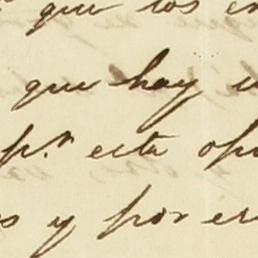 que los en
que hay u
p.r este opo
s y por es